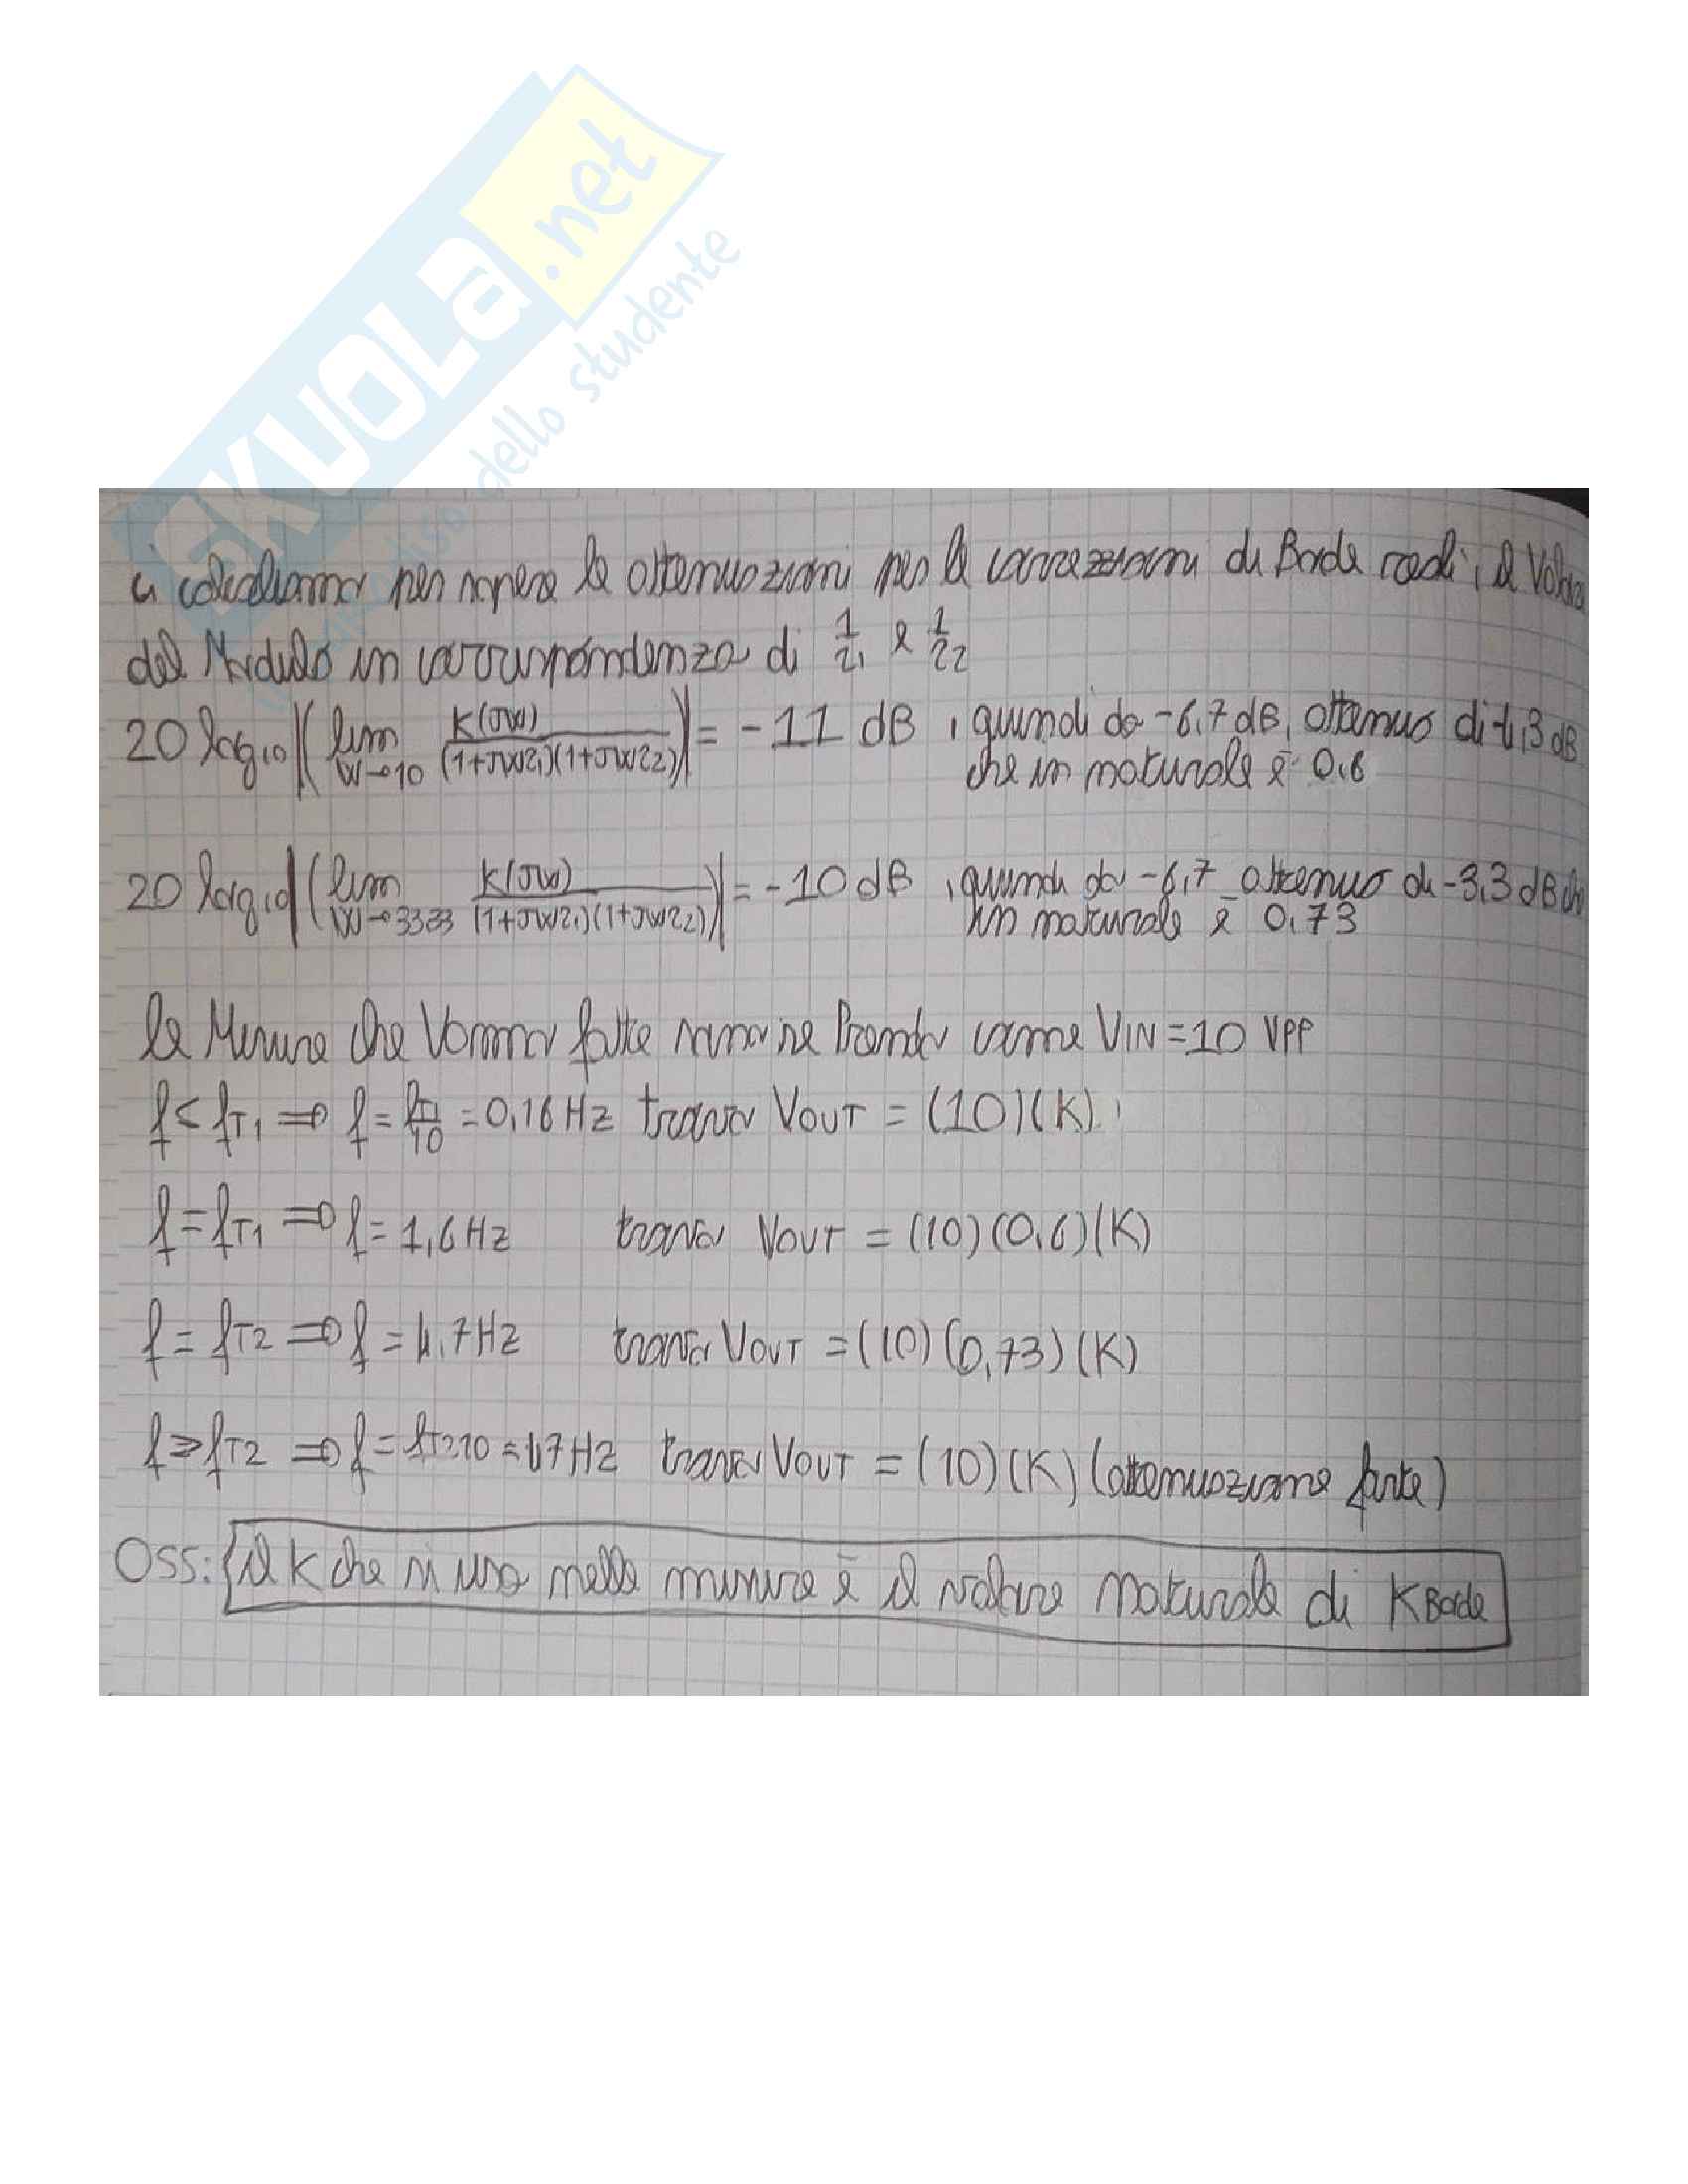 SKUOLA.net
dello studente
ci calcoliamo per sapere le attenuazioni per le correzioni di Bode reali, il Valore
del Modulo in corrispondenza di 1/τ1 e 1/τ2
20 log10 |(lim W→0 10 K(JW) / (1+JWτ1)(1+JWτ2))| = -11 dB, quindi da -6,7 dB, attenuo di -4,3 dB
che in naturale è 0,6
20 log10 |(lim W→0 3333 K(JW) / (1+JWτ1)(1+JWτ2))| = -10 dB, quindi da -6,7 attenuo di -3,3 dB che
in naturale è 0,73
le Misure che Vanno fatte sono se Prendo come VIN = 10 VPP
f < fT1 ⇒ f = fT1/10 = 0,16 Hz trovo VOUT = (10)(K)
f = fT1 ⇒ f = 1,6 Hz trovo VOUT = (10)(0,6)(K)
f = fT2 ⇒ f = 4,7 Hz trovo VOUT = (10)(0,73)(K)
f > fT2 ⇒ f = fT2 10 = 47 Hz trovo VOUT = (10)(K) (attenuazione forte)
OSS: {il K che si usa nelle misure è il valore naturale di K Bode